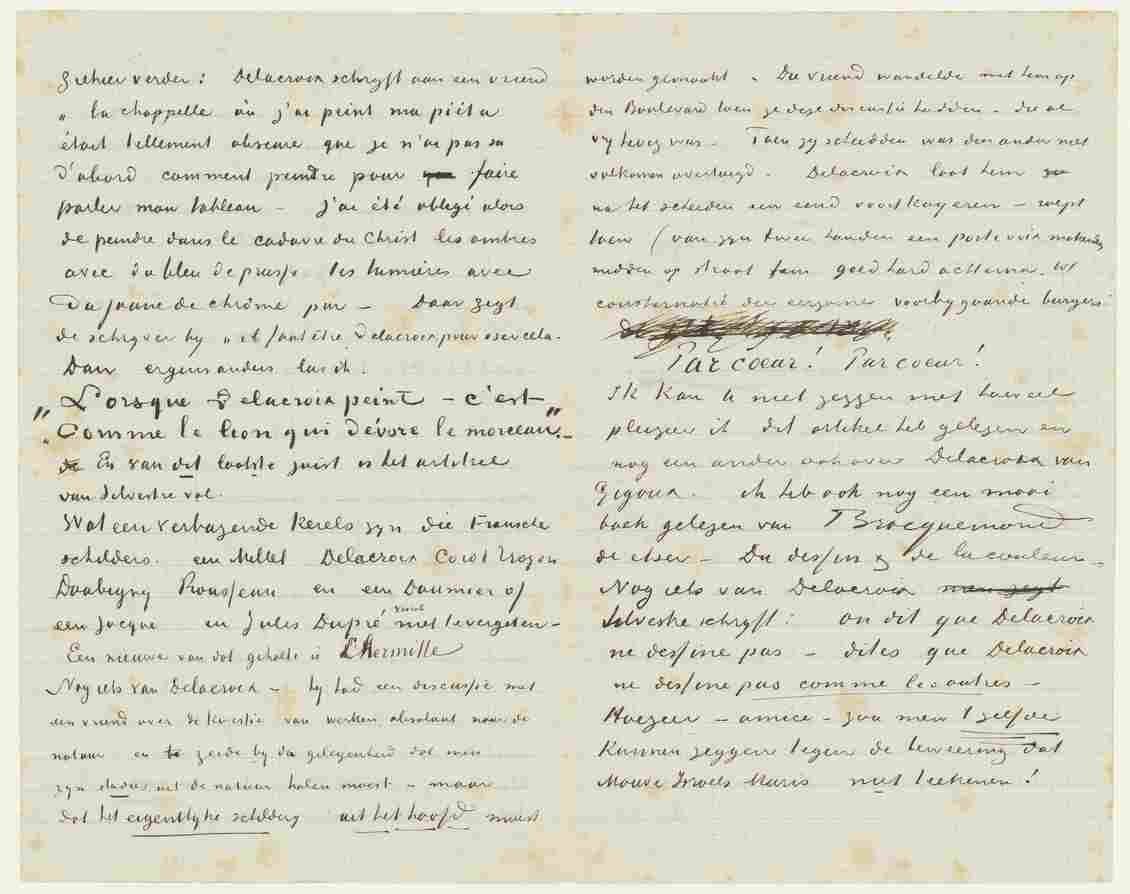 Ziehier verder: Delacroix schryft aan een vriend
„ la chappelle où j'ai peint ma pièta
était tellement obscure que je n'ai pas su
d'abord comment peindre pour faire
parler mon tableau – J'ai été obligé alors
de peindre dans le cadavre du Christ les ombres
avec du bleu de prusse les lumières avec
du jaune de chrôme pur – Daar zegt
de schryver by „ il faut être Delacroix pour oser cela.
Dan ergens anders las ik:
„ Lorsque Delacroix peint – c'est
comme le lion qui dévore le morceau." –
En van dit laatste juist is het artikel
van Silvestre vol.
Wat een verbazende kerels zyn die Fransche
schilders. een Millet Delacroix Corot Troyon
Daubigny Rousseau en een Daumier of
een Jacque en Jules Dupré vooral niet te vergeten –
Een nieuwe van dat gehalte is Lhermitte
Nog iets van Delacroix – hy had een discussie met
een vriend over de kwestie van werken absoluut naar de
natuur en zeide by die gelegenheid dat men
zyn studies uit de natuur halen moest – maar
dat het eigentlyke schildery uit het hoofd moest
worden gemaakt – Die vriend wandelde met hem op
den Boulevard toen ze deze discussie hadden – die al
vry hevig was – Toen zy scheidden was de ander niet
volkomen overtuigd. Delacroix laat hem
na het scheiden een eind voortkuyeren – roept
toen (van zyn twee handen een porte voix makende
midden op straat hem goed hard achterna, tot
consternatie der eerzame voorbygaande burgers:
Par coeur! Par coeur!
Ik kan U niet zeggen met hoeveel
plezier ik dit artikel heb gelezen en
nog een ander ook over Delacroix van
Gigoux. ik heb ook nog een mooi
boek gelezen van Bracquemond
de etser – Du dessin & de la couleur –
Nog iets van Delacroix
Silvestre schryft: on dit que Delacroix
ne dessine pas – dites que Delacroix
ne dessine pas comme les autres –
Hoezeer – amice – zou men 't zelfde
kunnen zeggen tegen de bewering dat
Mauve Israels Maris niet teekenen!